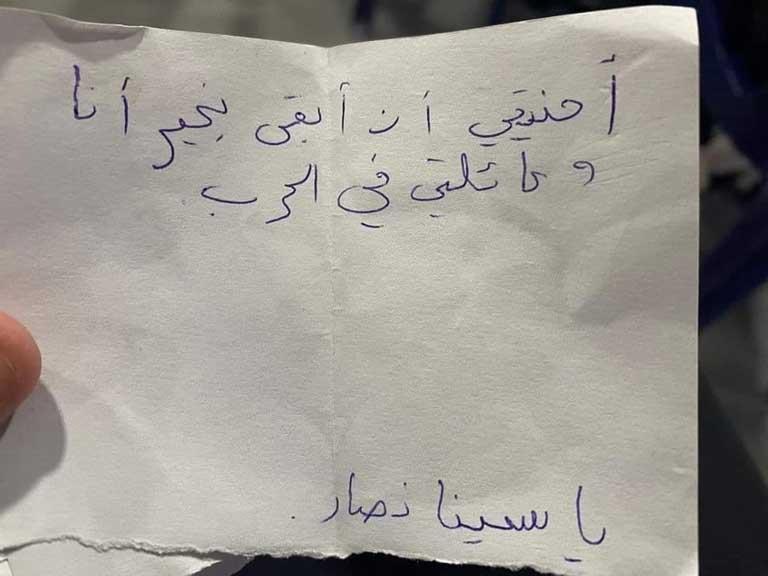 أحنيتي أن أبقى بخير أنا
وعائلتي في الحرب.
ياسينا نصار.